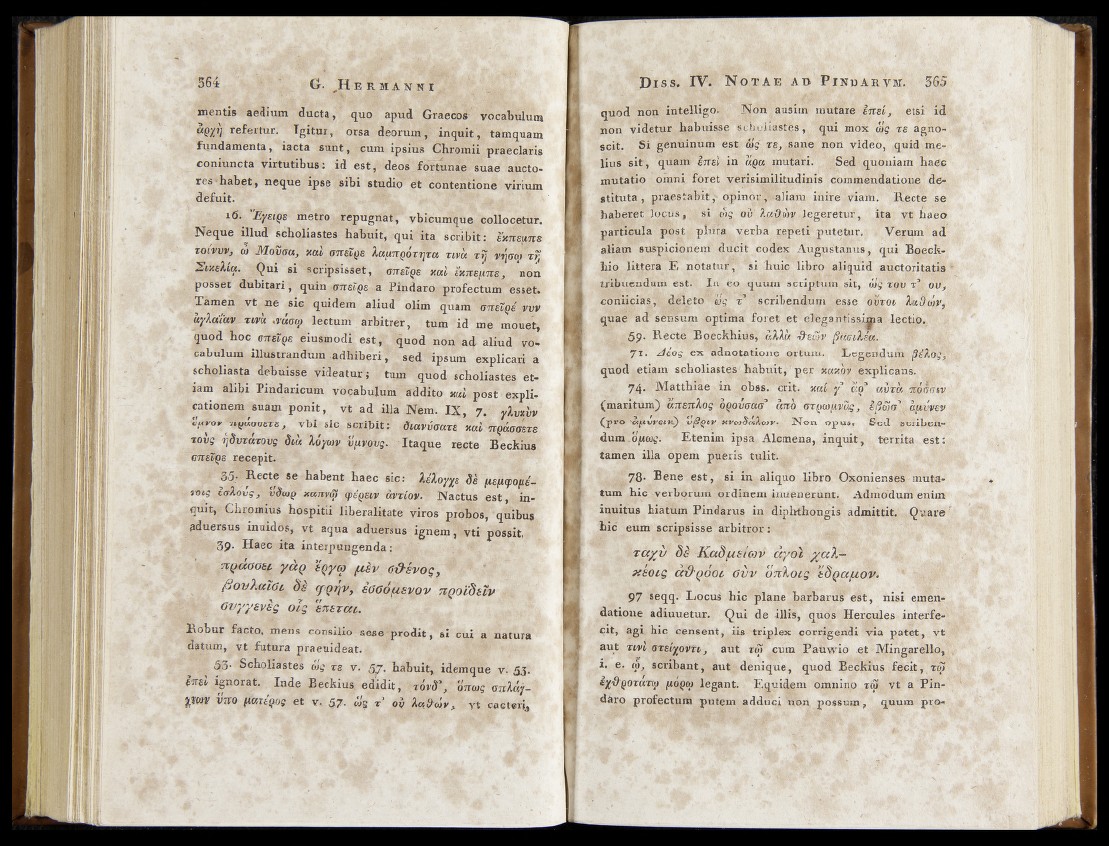 364 G. HERMANNI
mentis aedium ducta, quo apud Graecos vocabulum
ἀρχὴ refertur. Igitur, orsa deorum, inquit, tamquam
fundamenta, iacta sunt, cum ipsius Chromii praeclaris
coniuncta virtutibus: id est, deos fortunae suae aucto-
res habet, neque ipse sibi studio et contentione virium
defuit.
16. Ἔγειρε metro repugnat, vbicumque collocetur.
Neque illud scholiastes habuit, qui ita scribit: ἔκπεμπε
τοίνυν, ὦ Μοῦσα, καὶ σπεῖρε λαμπρότητα τινὰ τῇ νήσῳ τῇ
Σικελίᾳ. Qui si scripsisset, σπεῖρε καὶ ἔκπεμπε, non
posset dubitari, quin σπεῖρε a Pindaro profectum esset.
Tamen vt ne sic quidem aliud olim quam σπεῖρέ νυν
ἀγλαΐαν τινὰ νάσῳ lectum arbitrer, tum id me mouet,
quod hoc σπεῖρε eiusmodi est, quod non ad aliud vo-
cabulum illustrandum adhiberi, sed ipsum explicari a
scholiasta debuisse videatur; tum quod scholiastes et-
iam alibi Pindaricum vocabulum addito καὶ post expli-
cationem suam ponit, vt ad illa Nem. IX, 7. γλυκὺν
ὕμνον πράσσετε, vbi sic scribit: διανύσατε καὶ πράσσετε
τοὺς ἡδυτάτους διὰ λόγων ὕμνους. Itaque recte Beckius
σπεῖρε recepit.
35. Recte se habent haec sic: λέλογχε δὲ μεμφομέ-
νοις ἐσλοὺς, ὕδωρ καπνῷ φέρειν ἀντίον. Nactus est, in-
quit, Chromius hospitii liberalitate viros probos, quibus
aduersus inuidos, vt aqua aduersus ignem, vti possit.
39. Haec ita interpungenda:
πράσσει γὰρ ἔργῳ μὲν σθένος,
βουλαῖσι δὲ φρήν, ἐσσόμενον προϊδεῖν
συγγενὲς οἷς ἕπεται.
Robur facto, mens consilio sese prodit, si cui a natura
datum, vt futura praeuideat.
53. Scholiastes ὥς τε v. 57. habuit, idemque v. 53.
ἐπεὶ ignorat. Inde Beckius edidit, τόνδ', ὅπως σπλάγ-
χνων ὑπο ματέρος et v. 57. ὥς τ' οὐ λαθών, vt caeteri,
DISS. IV. NOTAE AD PINDARVM. 365
quod non intelligo. Non ausim mutare ἐπεί, etsi id
non videtur habuisse scholiastes, qui mox ὥς τε agno-
scit. Si genuinum est ὥς τε, sane non video, quid me-
lius sit, quam ἐπεὶ in ἄρα mutari. Sed quoniam haec
mutatio omni foret verisimilitudinis commendatione de-
stituta, praestabit, opinor, aliam inire viam. Recte se
haberet locus, si ὡς οὐ λαθὼν legeretur, ita vt haec
particula post plura verba repeti putetur. Verum ad
aliam suspicionem ducit codex Augustanus, qui Boeck-
hio littera E notatur, si huic libro aliquid auctoritatis
tribuendum est. In eo quum scriptum sit, ὥς του τ' οὐ,
coniicias, deleto ὥς τ' scribendum esse οὔτοι λαθών,
quae ad sensum optima foret et elegantissima lectio.
59. Recte Boeckhius, ἀλλὰ θεῶν βασιλέα.
71. Δέος ex adnotatione ortum. Legendum βέλος,
quod etiam scholiastes habuit, per κακὸν explicans.
74. Matthiae in obss. crit. καὶ γ' ἄρ' αὐτὰ πόσσιν
(maritum) ἄπεπλος ὀρούσασ' ἀπὸ στρωμνᾶς, ἐβῶσ' ἀμύνεν
(pro ἀμύνειν) ὕβριν κνωδάλων. Non opus. Sed scriben-
dum ὅμως. Etenim ipsa Alcmena, inquit, territa est:
tamen illa opem pueris tulit.
78. Bene est, si in aliquo libro Oxonienses muta-
tum hic verborum ordinem inuenerunt. Admodum enim
inuitus hiatum Pindarus in diphthongis admittit. Quare
hic eum scripsisse arbitror:
ταχὺ δὲ Καδμείων ἀγοὶ χαλ-
κέοις ἀθρόοι σὺν ὅπλοις ἔδραμον.
97 seqq. Locus hic plane barbarus est, nisi emen-
datione adiuuetur. Qui de illis, quos Hercules interfe-
cit, agi hic censent, iis triplex corrigendi via patet, vt
aut τινὶ στείχοντι, aut τῷ cum Pauwio et Mingarello,
i. e. ᾧ, scribant, aut denique, quod Beckius fecit, τῷ
ἐχθροτάτῳ μόρῳ legant. Equidem omnino τῷ vt a Pin-
daro profectum putem adduci non possum, quum pro-